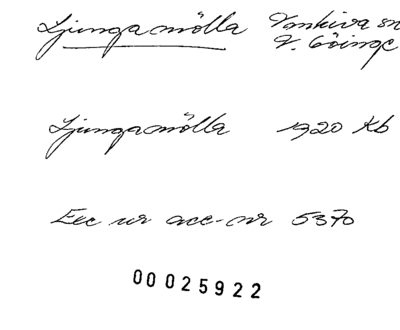 Ljungamölla Vankiva sn
V. Göinge
Ljungamölla 1920 Kb
Exc ur acc-nr 5370
00025922